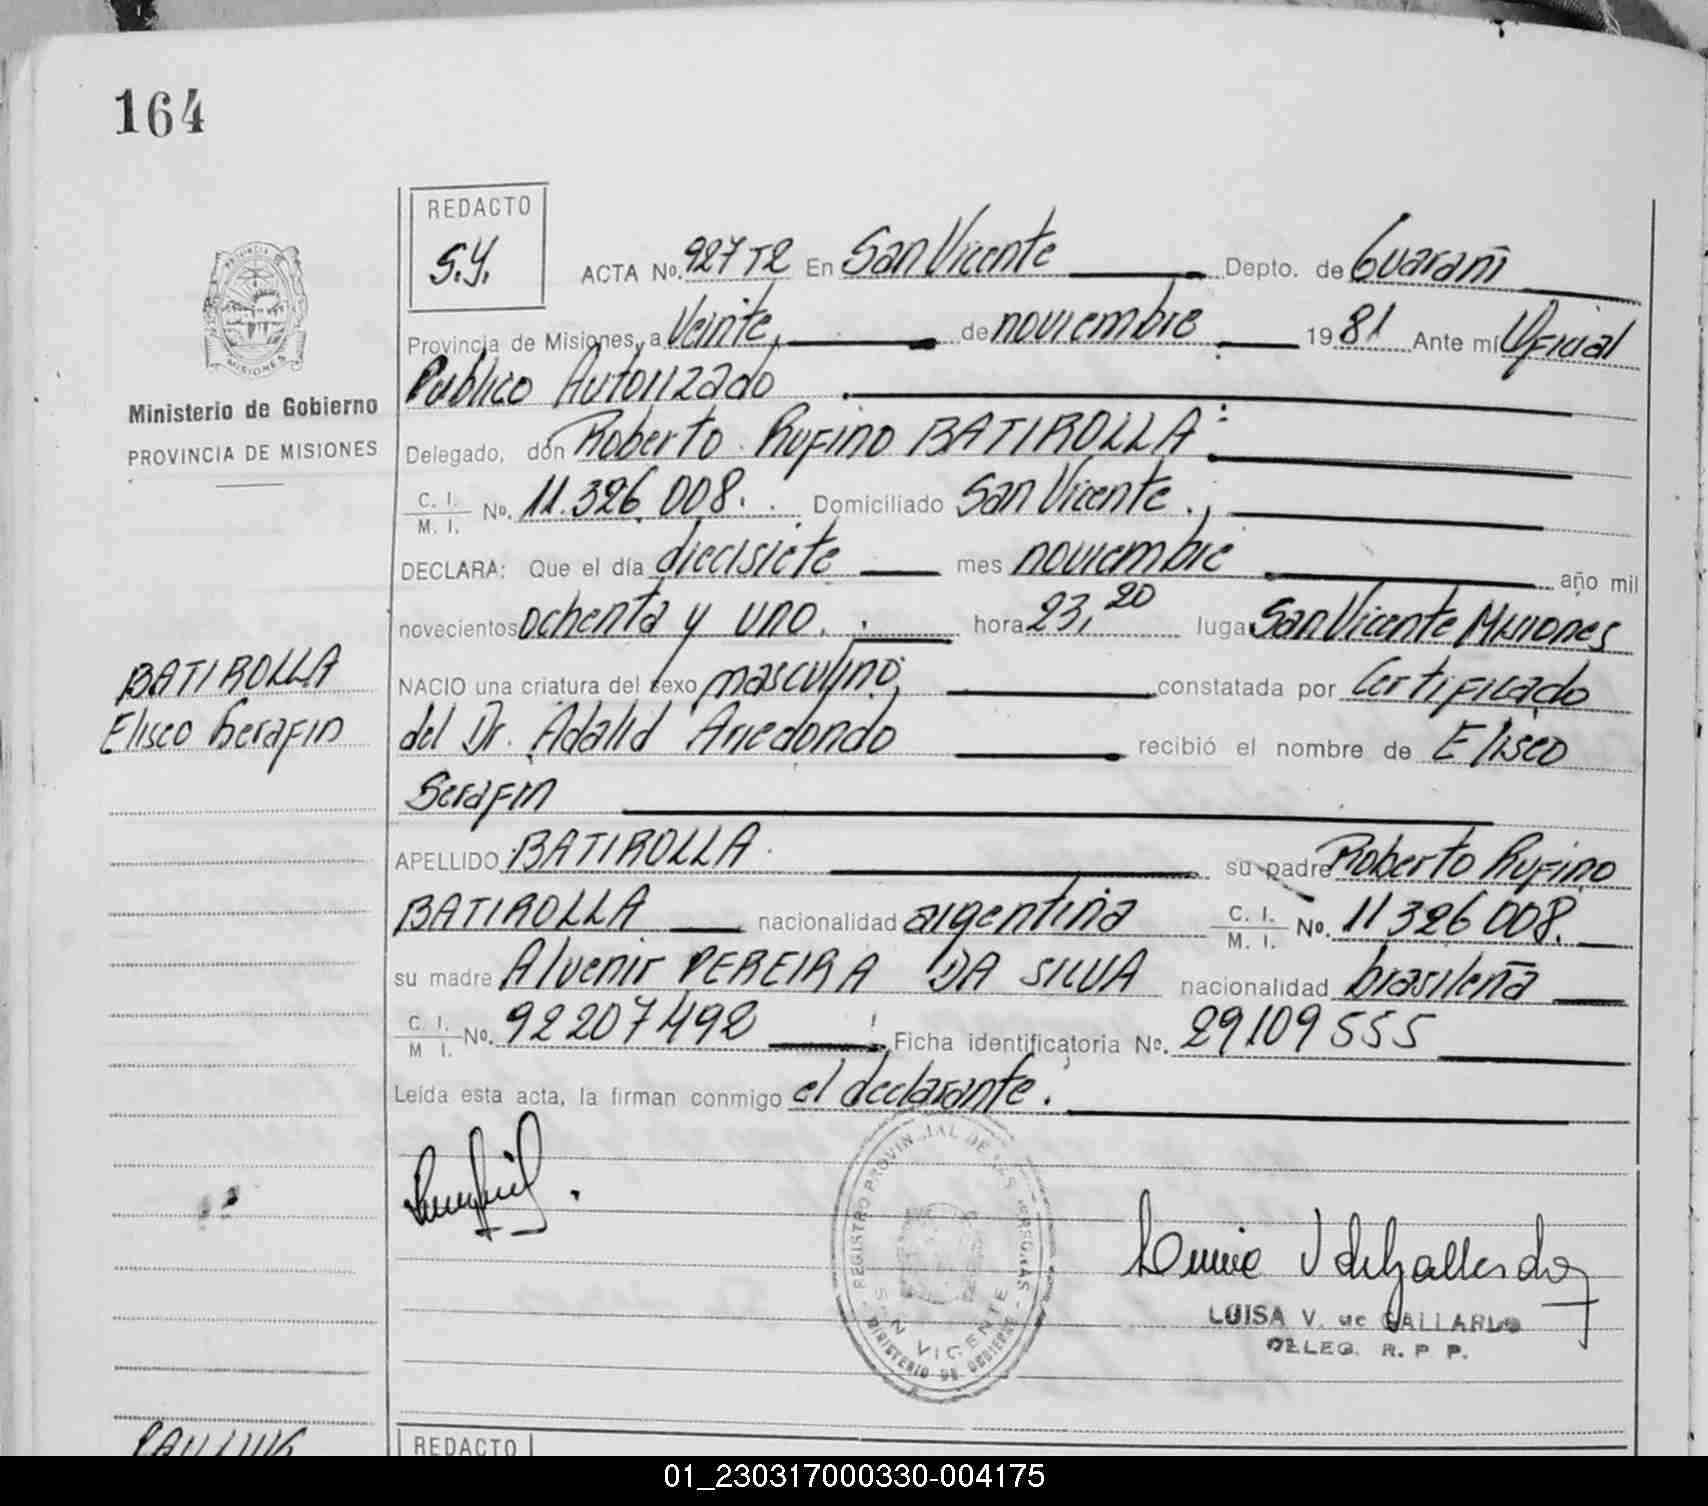 164
REDACTO
S.Y.
ACTA No. 927 T2 En San Vicente Depto. de Guaraní
Provincia de Misiones, a Veinte, de noviembre 1981 Ante mí Oficial
Publico Autorizado
Delegado, don Roberto Rufino BATIROLLA:
C. I. / M. I. No. 11.326.008. Domiciliado San Vicente.,
DECLARA: Que el día diecisiete mes noviembre año mil
novecientos ochenta y uno. hora 23,20 lugar San Vicente Misiones
NACIO una criatura del sexo masculino, constatada por Certificado
del Dr. Adalid Arredondo recibió el nombre de Eliseo
Serafin
APELLIDO BATIROLLA su padre Roberto Rufino
BATIROLLA nacionalidad argentina C. I. / M. I. No. 11326008.
su madre Alvenir PEREIRA DA SILVA nacionalidad brasileña
C. I. / M I. No. 92207492 Ficha identificatoria No. 29109555
Leída esta acta, la firman conmigo el declarante.
PROVINCIA
MISIONES
Ministerio de Gobierno
PROVINCIA DE MISIONES
BATIROLLA
Eliseo Serafin
REGISTRO PROVINCIAL DE LAS PERSONAS
SAN VICENTE
MINISTERIO DE GOBIERNO
LUISA V. de GALLARDO
DELEG. R. P P.
REDACTO
01_230317000330-004175